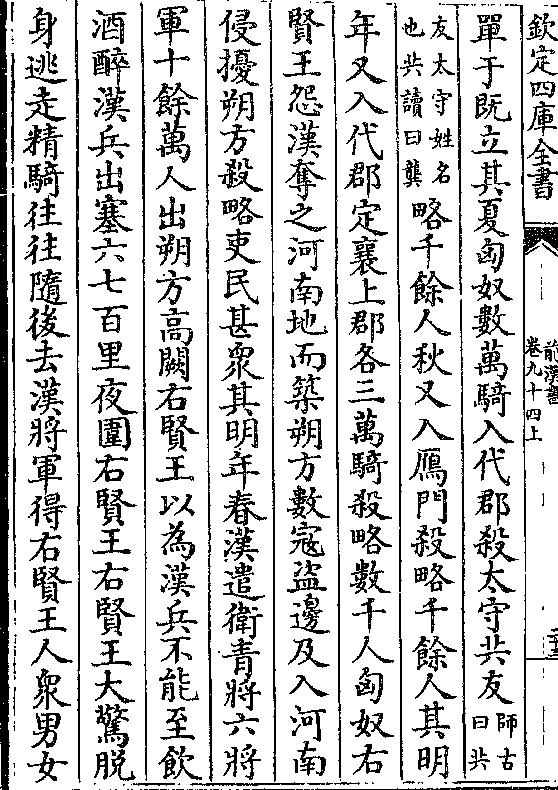 欽定四庫全書
前漢書
卷九十四上
單于既立其夏匈奴數萬騎入代郡殺太守共友師古曰共
友太守姓名也共讀曰龔略千餘人秋又入鴈門殺略千餘人其明
年又入代郡定襄上郡各三萬騎殺略數千人匈奴右
賢王怨漢奪之河南地而築朔方數寇盜邊及入河南
侵擾朔方殺略吏民甚眾其明年春漢遣衛青將六將
軍十餘萬人出朔方高闕右賢王以為漢兵不能至飲
酒醉漢兵出塞六七百里夜圍右賢王右賢王大驚脫
身逃走精騎往往隨後去漢將軍得右賢王人眾男女